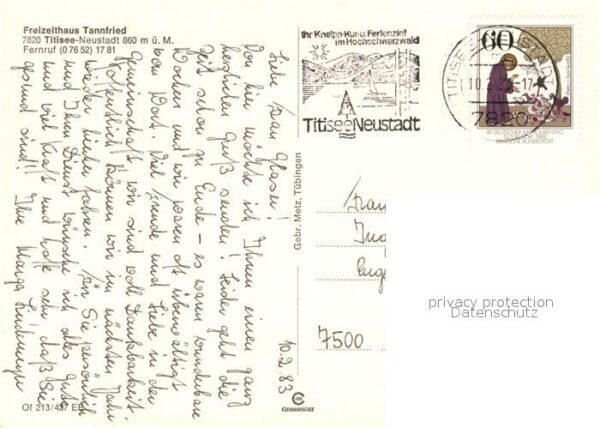 Freizeithaus Tannfried
7820 Titisee-Neustadt 860 m ü. M.
Fernruf (0 76 52) 17 81
Ihr Kneipp-Kur-u. Ferienziel
im Hochschwarzwald
Titisee Neustadt
60
7820
DEUTSCHE BUNDESPOST
Liebe Frau Glaser!
Von hier möchte ich Ihnen einen ganz
herzlichen Gruß senden! Leider geht die
Zeit schon zu Ende – es waren wunderbare
Wochen und wir waren oft überwältigt
von Wort. Viel Freude und Liebe in der
Gemeinschaft – wir sind voll Dankbarkeit.
Hoffentlich können wir im nächsten Jahr
wieder hierher fahren. Für Sie persönlich
und Ihren Dienst wünsche ich alles Gute
und viel Kraft und hoffe sehr, daß Sie
gesund sind! Ihre Marga
10.2.83
Gebr. Metz, Tübingen
Frau
7500
privacy protection
Datenschutz
Of 213/427 EE
CHROMOLUX